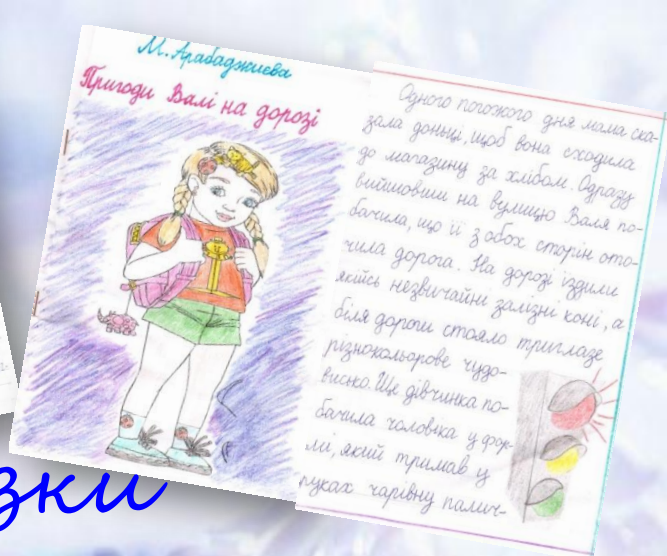 М. Арабаджиєва
Пригоди Валі на дорозі
Одного погожого дня мама ска-
зала доньці, щоб вона сходила
до магазину за хлібом. Одразу
вийшовши на вулицю Валя по-
бачила, що її з обох сторін ото-
чила дорога. На дорозі їздили
якійсь незвичайні залізні коні, а
біля дороги стояло триглазе
різнокольорове чудо-
висько. Ще дівчинка по-
бачила чоловіка у фор-
ми, який тримав у
руках чарівну палич-
зки